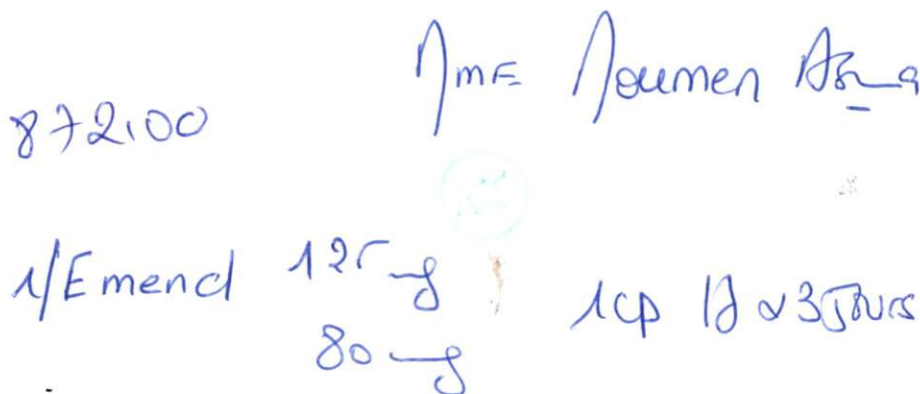 Mme Moumen Asma
872.00
1/Emend 125 mg
80 mg
1cp /J x 3 Jours